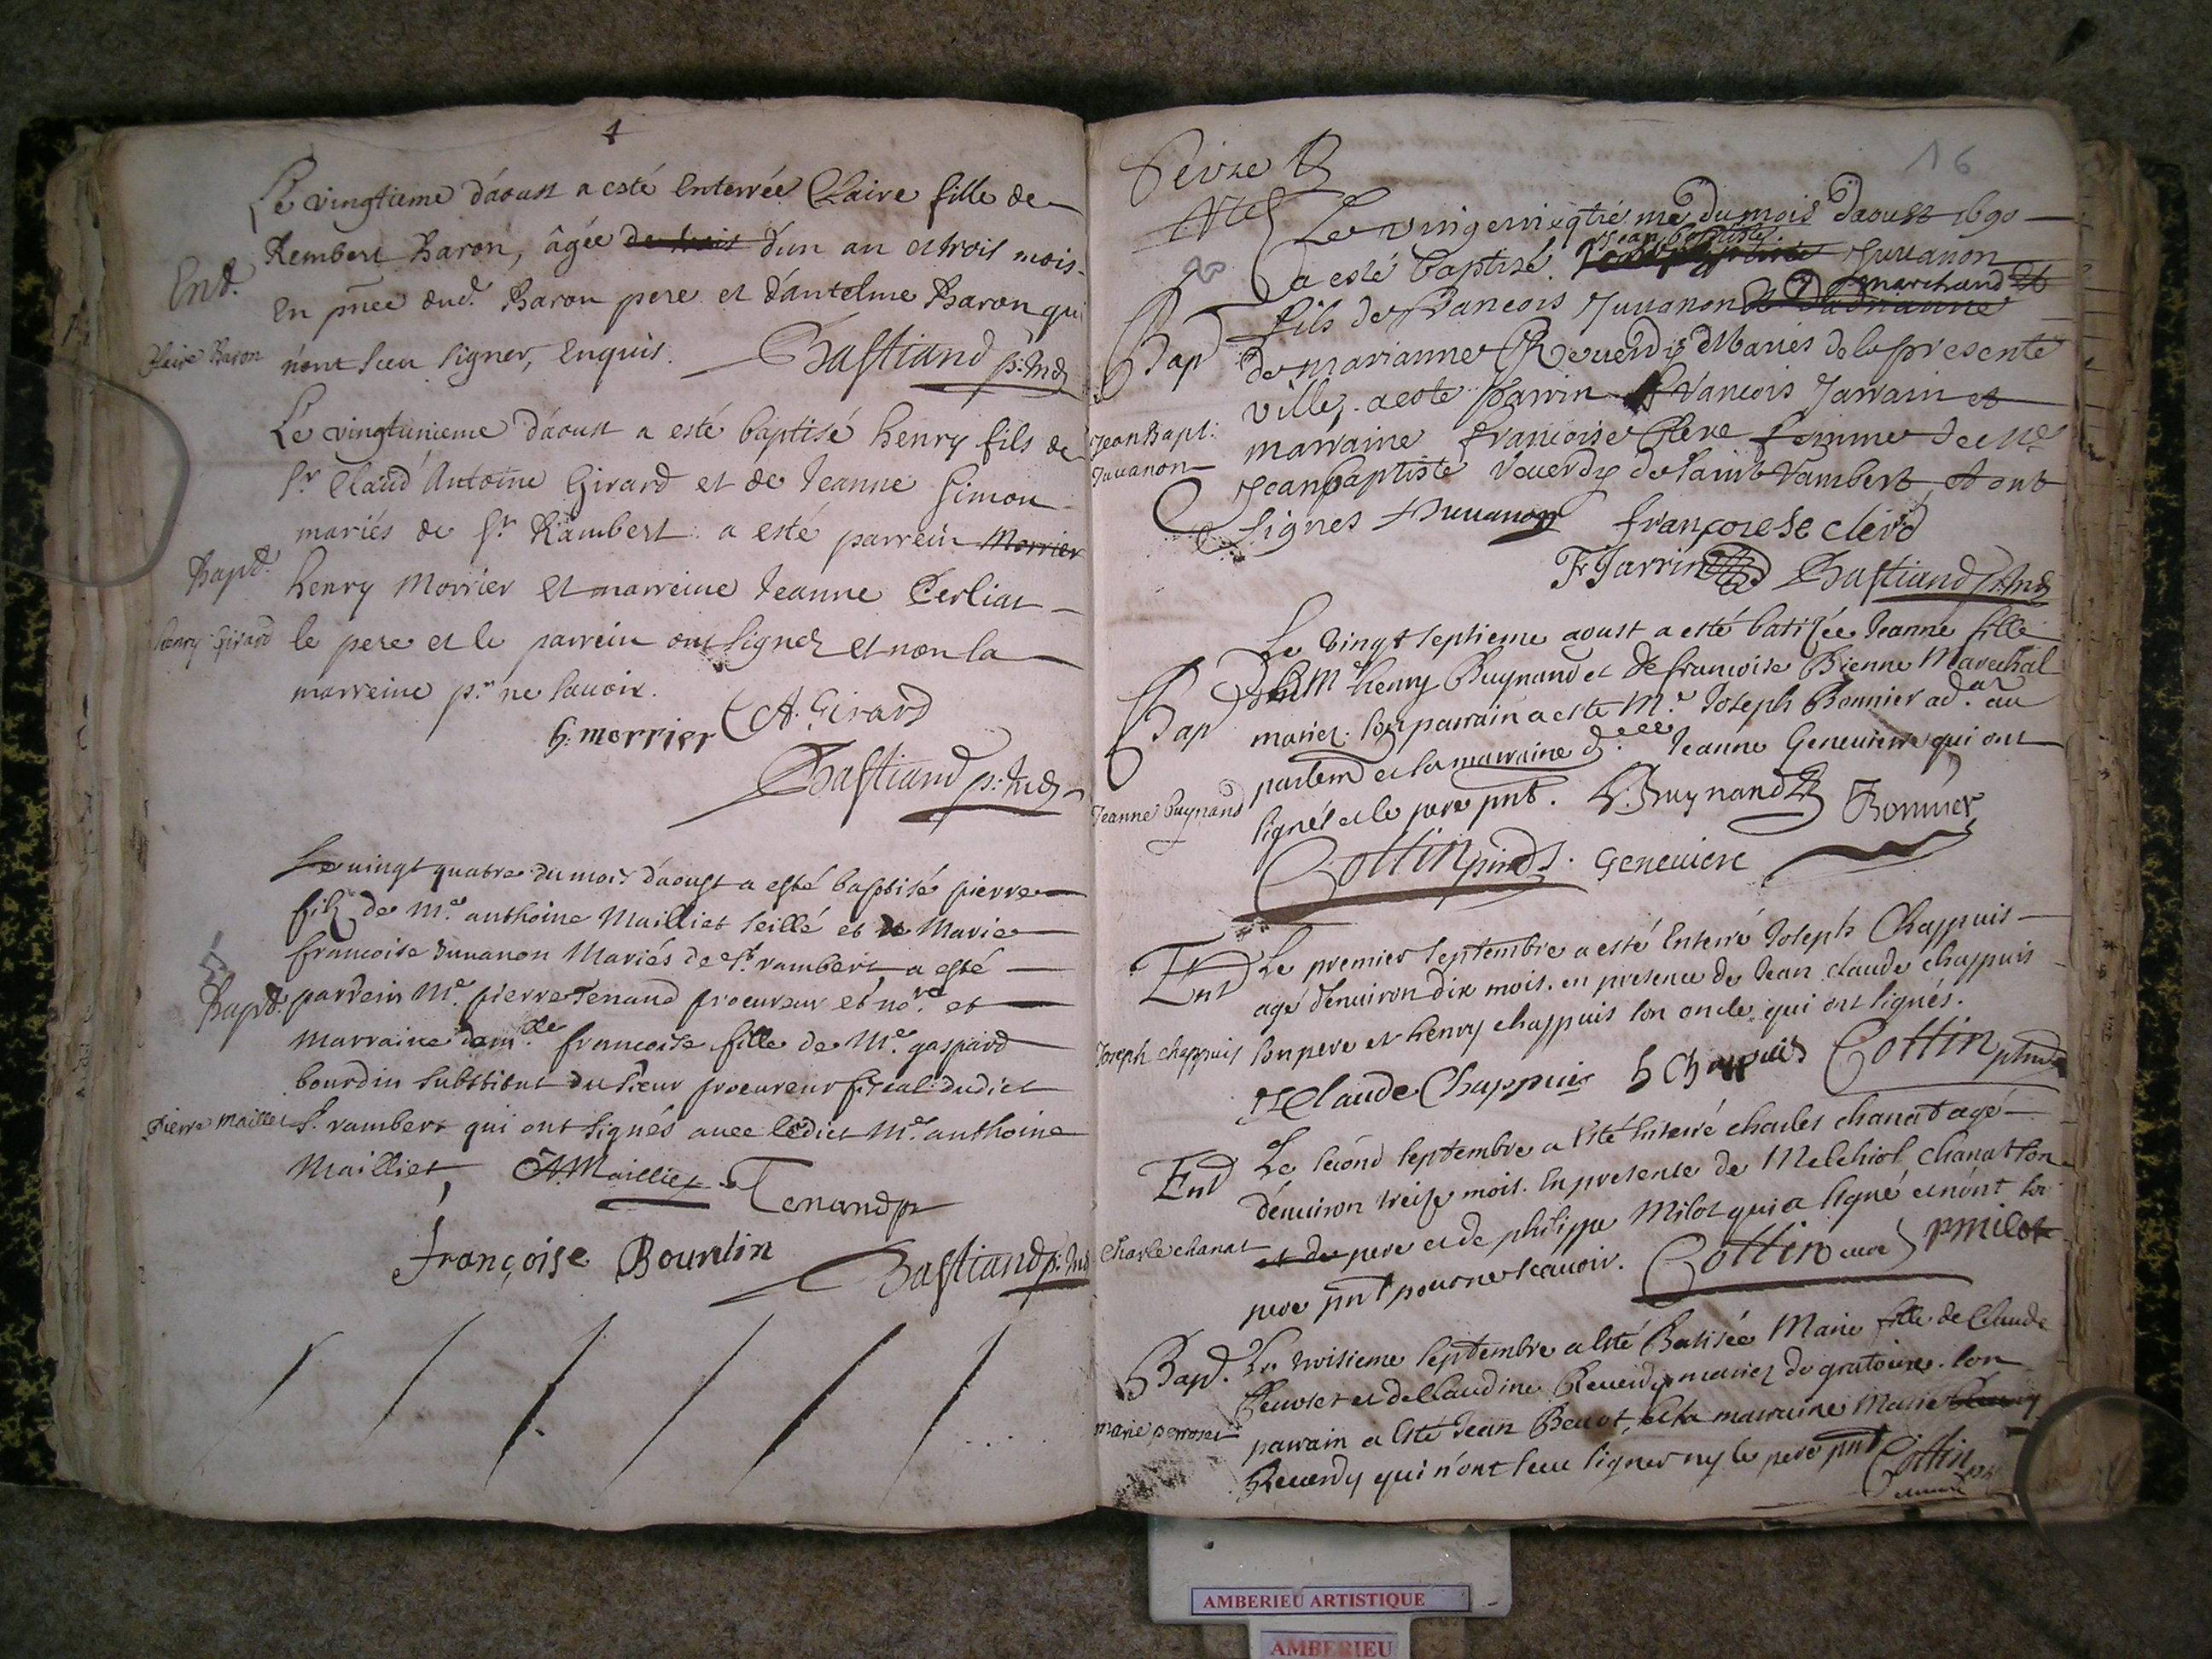 Le vingtieme d'aoust a esté Enterrée Claire fille de
Rembert Baron, âgée de trois d'un an et trois mois
Ent.
En pñce dud. Baron pere et d'antelme Baron qui
Claire Baron
n'ont sceu signer, Enquis. Bastiand
Le vingtunieme d'aoust a esté baptisé henry fils de
Sr Claud Antoine Girard et de Jeanne Simon
mariés de St Rambert. a esté parrein Morrier
Bapt.
henry Morrier Et marreine Jeanne Perliat
henry Girard
le pere et le parrein ont signez et non la
marreine pr ne savoir.
h. morrier CA. Girard
Bastiand
Le vingt quatre du mois d'aoust a esté baptisé pierre
filz de Me. anthoine Mailliet seillé et de Marie
francoise Juuanon Mariés de St. rambert a esté
Bapt.
parrein Me. pierre Tenand procureur et nore. et
marraine damlle francoise fille de Me. gaspard
bourdin substitut du sieur procureur fiscal dudict
Pierre Maillet
St. rambert qui ont signés avec ledict Me. anthoine
Mailliet, A. Mailliet Tenand
françoise Bourdin Bastiand
Seize
16
a esté baptizé. Jean baptiste Juuanon
fils de francois Juuanon marchand et
Bap
de marianne Reuerdy Mariés de la presente
ville. a esté parrin francois Jarrain et
Jean Bapt:
Juuanon
marraine francoise Clere femme de Me
Jean baptiste reuerdy de saint rambert, et ont
signes Juuanon françoise clerd
Fr Jarrin Bastiand
Le vingt septieme aoust a esté batisée Jeanne fille
de Me henry Buynand et de francoise Bienne Marechal
Bap
mariez. son parrain a esté Me. Joseph Bonnier ad. au
parlemt et la marraine dlle Jeanne Geneuiere qui ont
Jeanne buynand
signés et le pere pnt. Buynand Bonnier
Cottin Geneuiere
Ent
Le premier septembre a esté Enterré Joseph Chappuis
agé d'enuiron dix mois. en presence de Jean claude chappuis
Joseph chappuis
son pere et henry chappuis son oncle qui ont signés.
JClaude Chappuis h Chappuis Cottin
Ent
Le second septembre a esté Enterré charles chanat agé
d'enuiron treise mois. En presence de Melchiol chanat son
Charle chanat
et de pere et de philippe Milot qui a signé et non le
pere pnt pour ne scauoir. Cottin curé pmilot
Bapt.
Le troisieme septembre a esté Batisée Marie fille de Claude
et de Claudine Reuerdy mariez de gratoire. son
marie perroset
parrain a esté Jean Benot, et la marraine Marie
Reuerdy qui n'ont sceu signer ny le pere pnt Cottin
AMBERIEU ARTISTIQUE
AMBERIEU